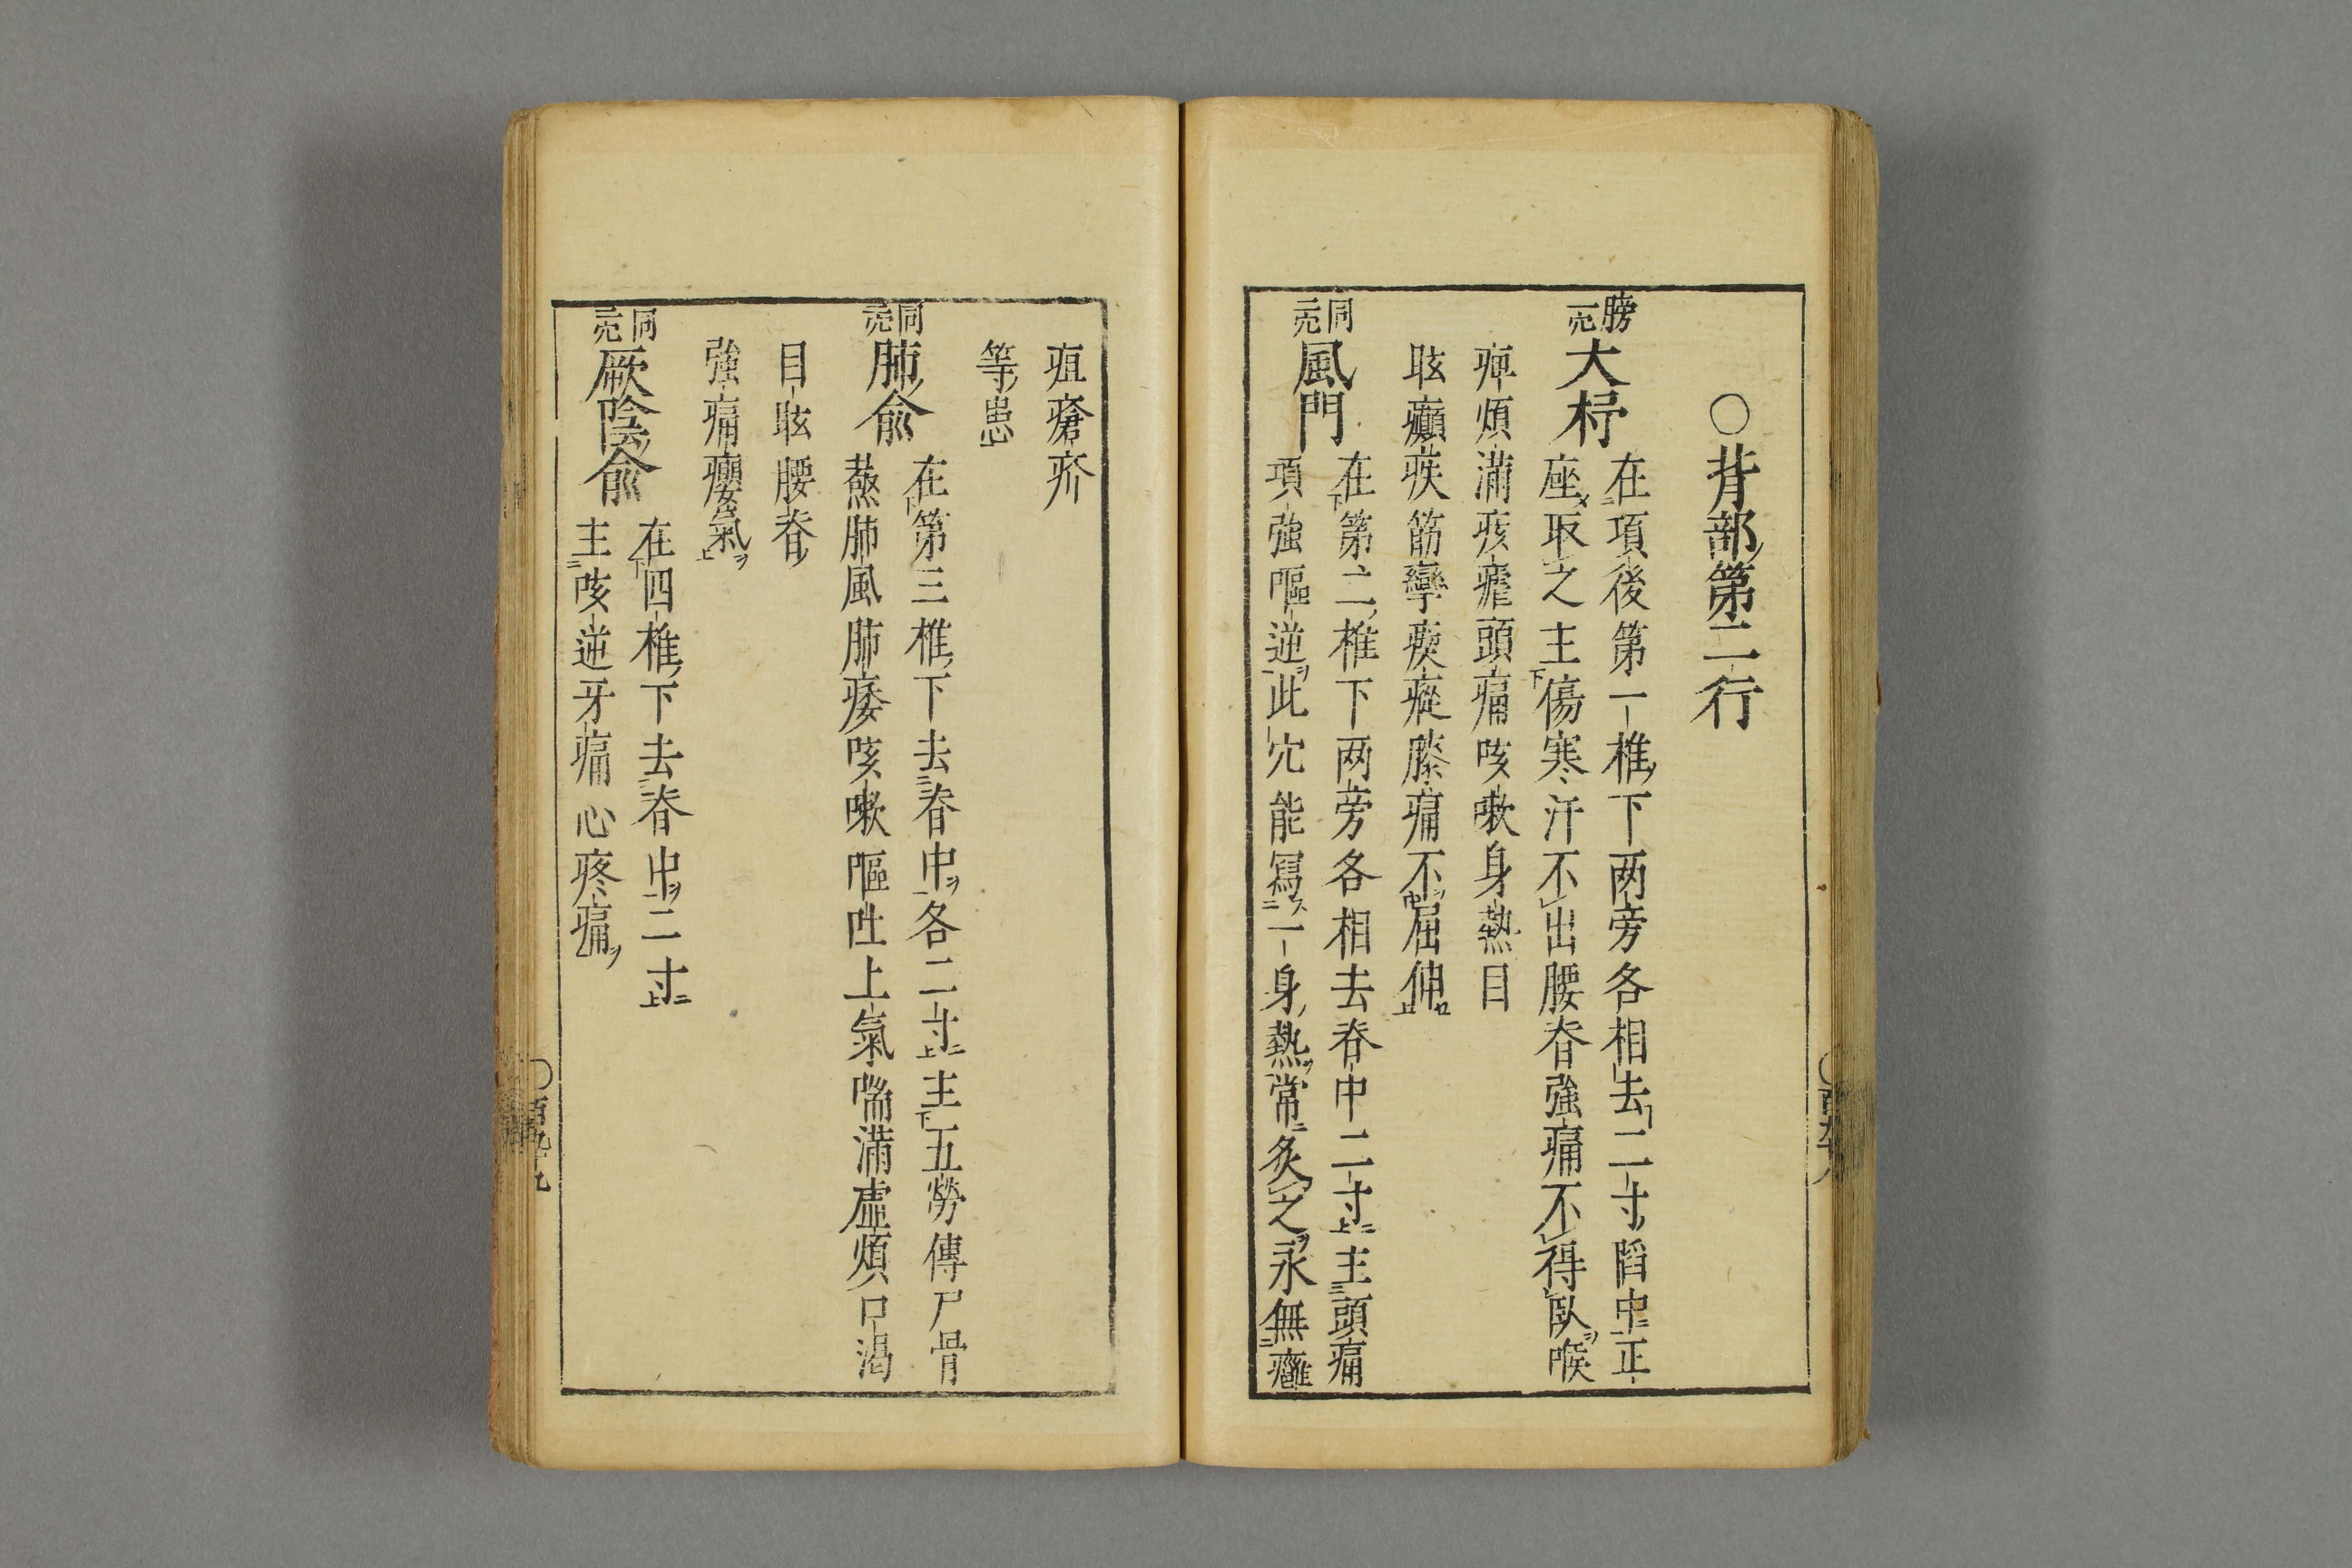 ○背部第二行
膀一穴
大杼
在項後第一椎下两旁各相去二寸陷中正
座取之主傷寒汗不出腰脊強痛不得臥喉
痺煩滿痎瘧頭痛咳嗽身熱目
眩癲疾筋攣瘈瘲膝痛不屈伸
同二穴
風門
在第二椎下两旁各相去脊中二寸主頭痛
項強嘔逆此穴能瀉一身熱常灸之永無癰
疽瘡疥
等患
同三穴
肺俞
在第三椎下去脊中各二寸主五勞傳尸骨
蒸肺風肺痿咳嗽嘔吐上氣喘滿虛煩口渴
目眩腰脊
強痛癭氣
同二穴
厥陰俞
在四椎下去脊中二寸
主咳逆牙痛心疼痛